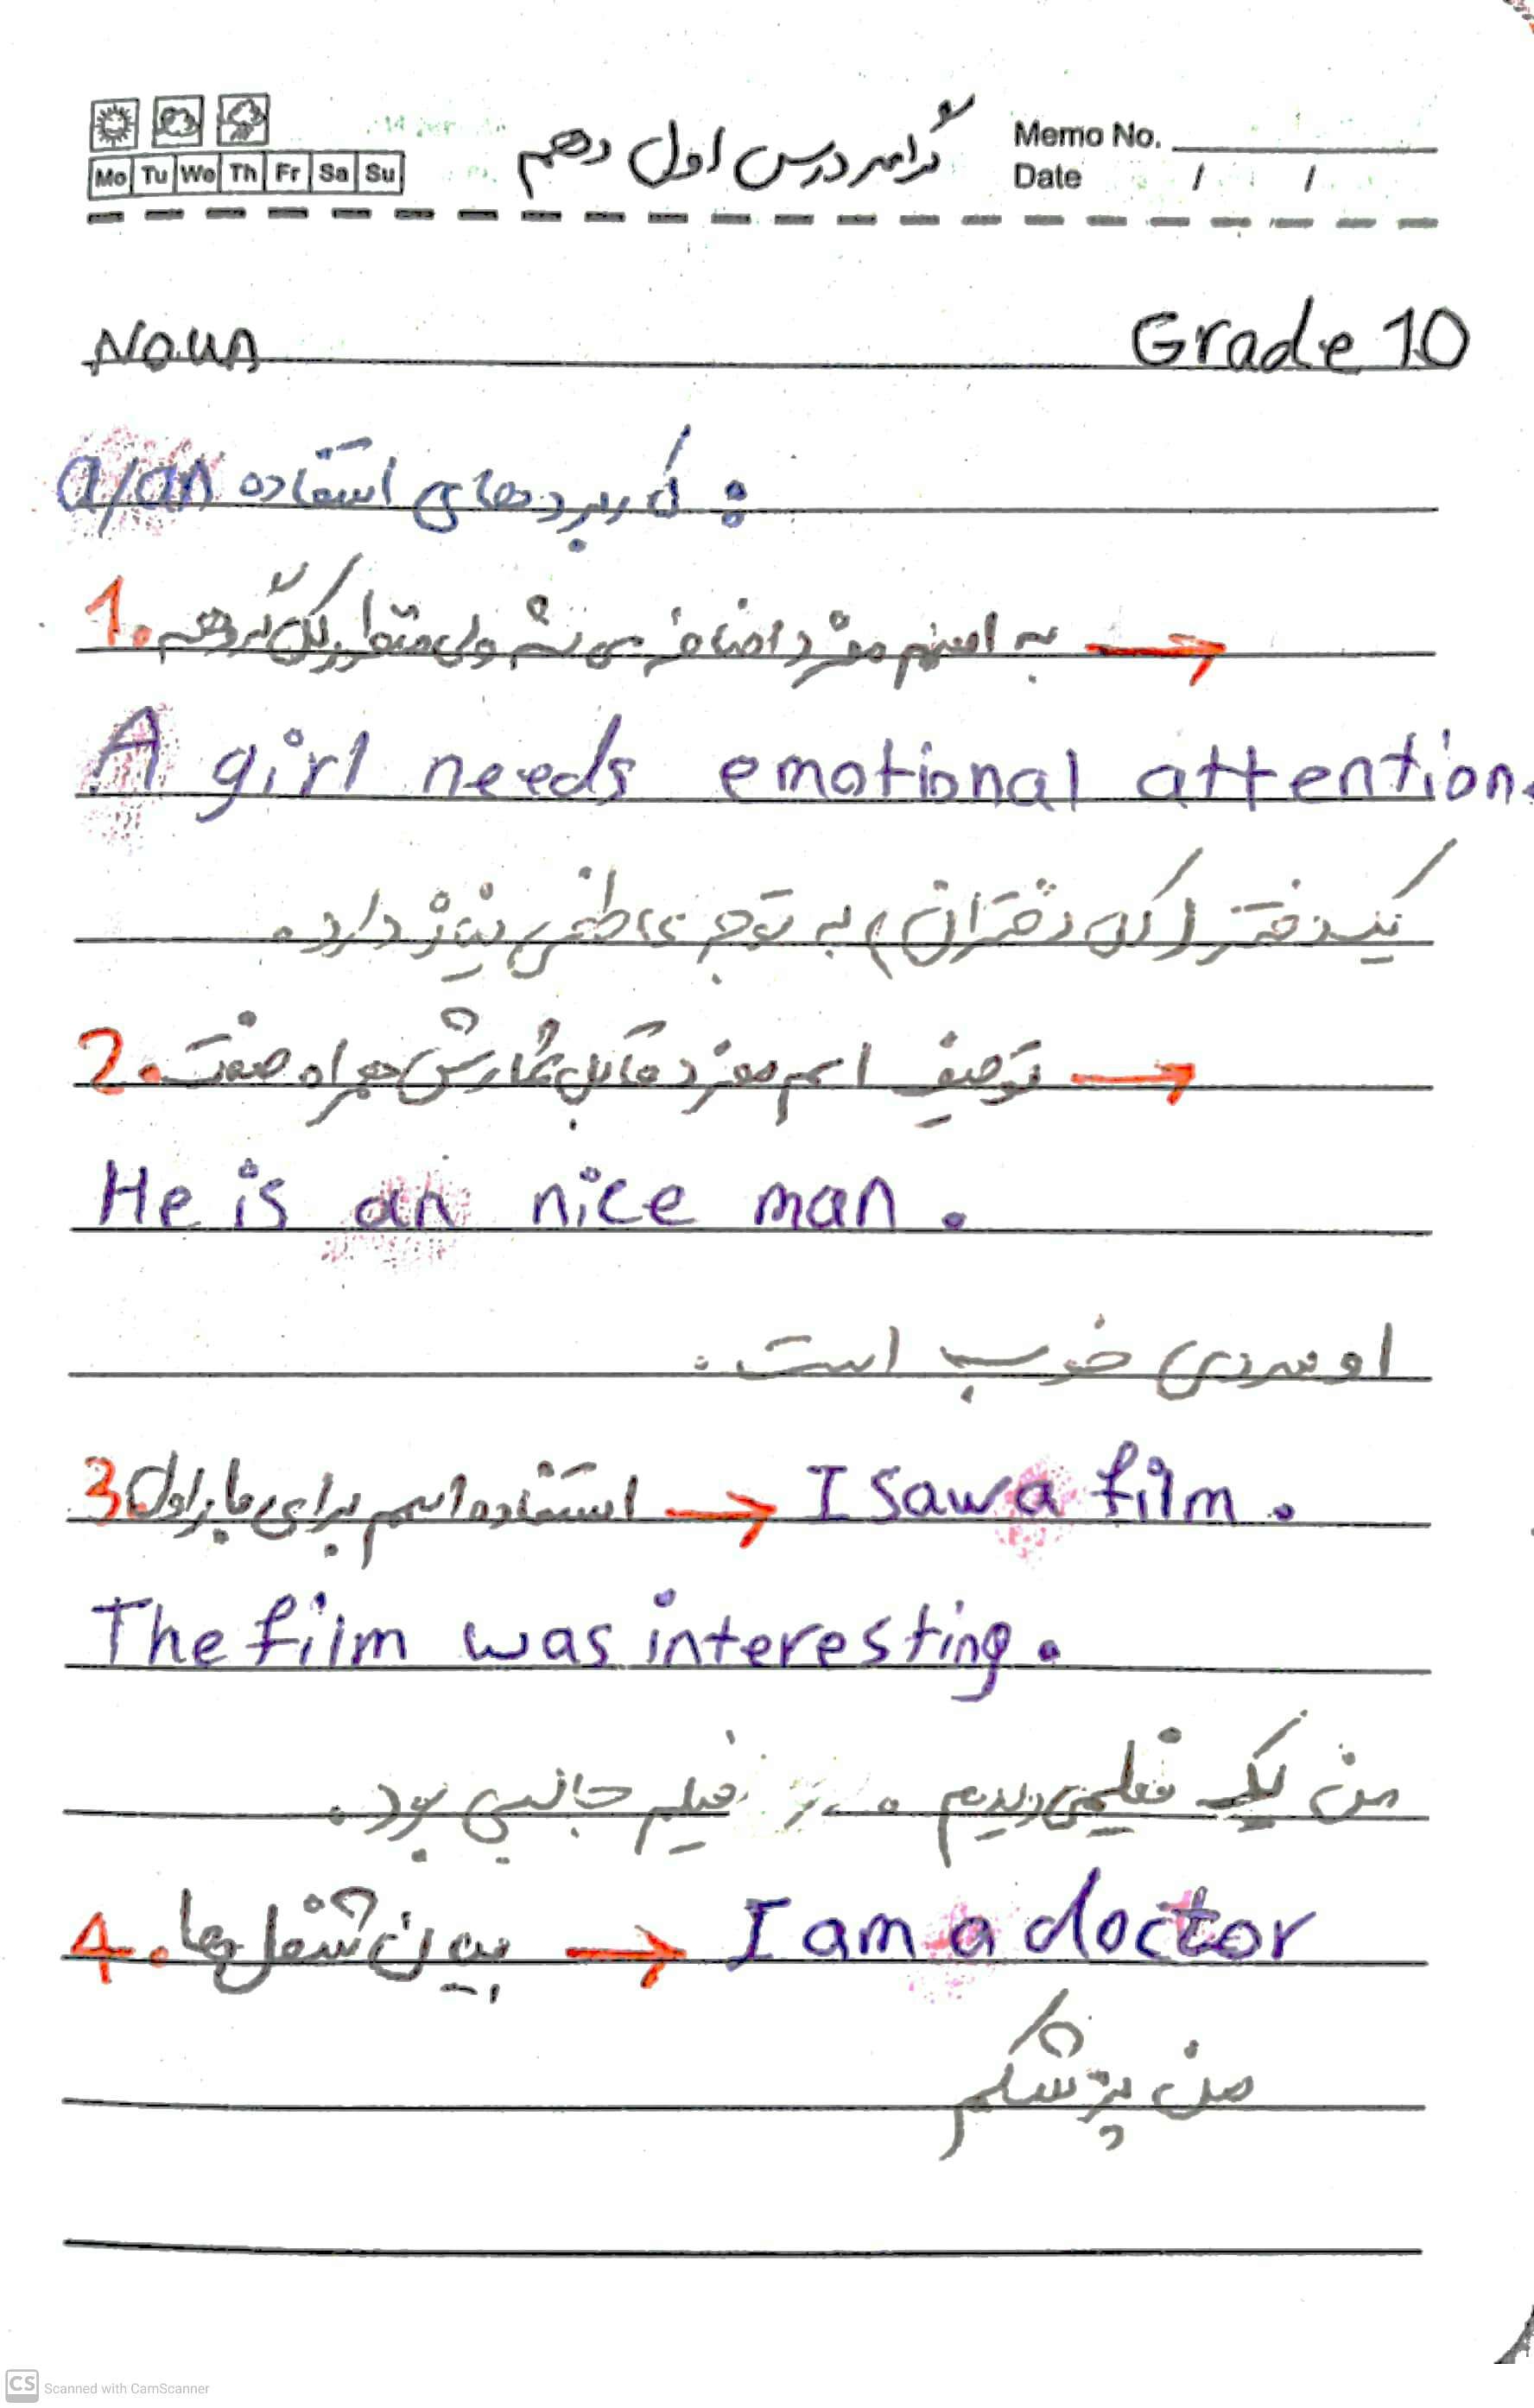 Mo Tu We Th Fr Sa Su
گرامر درس اول دهم
Memo No.
Date / /
Noun Grade 10
a/an کاربردهای استفاده :
1. به اسم مفرد اضافه می شه ولی منظور کل گروهه →
A girl needs emotional attention.
یک دختر (کل دختران) به توجه عاطفی نیاز دارد.
2. توصیف اسم مفرد قابل شمارش همراه صفت →
He is an nice man.
او مردی خوب است.
3. استفاده اسم برای بار اول → I saw a film.
The film was interesting.
من یک فیلمی دیدم. فیلم جالبی بود.
4. بین شغل ها → I am a doctor
من پزشکم
CS Scanned with CamScanner